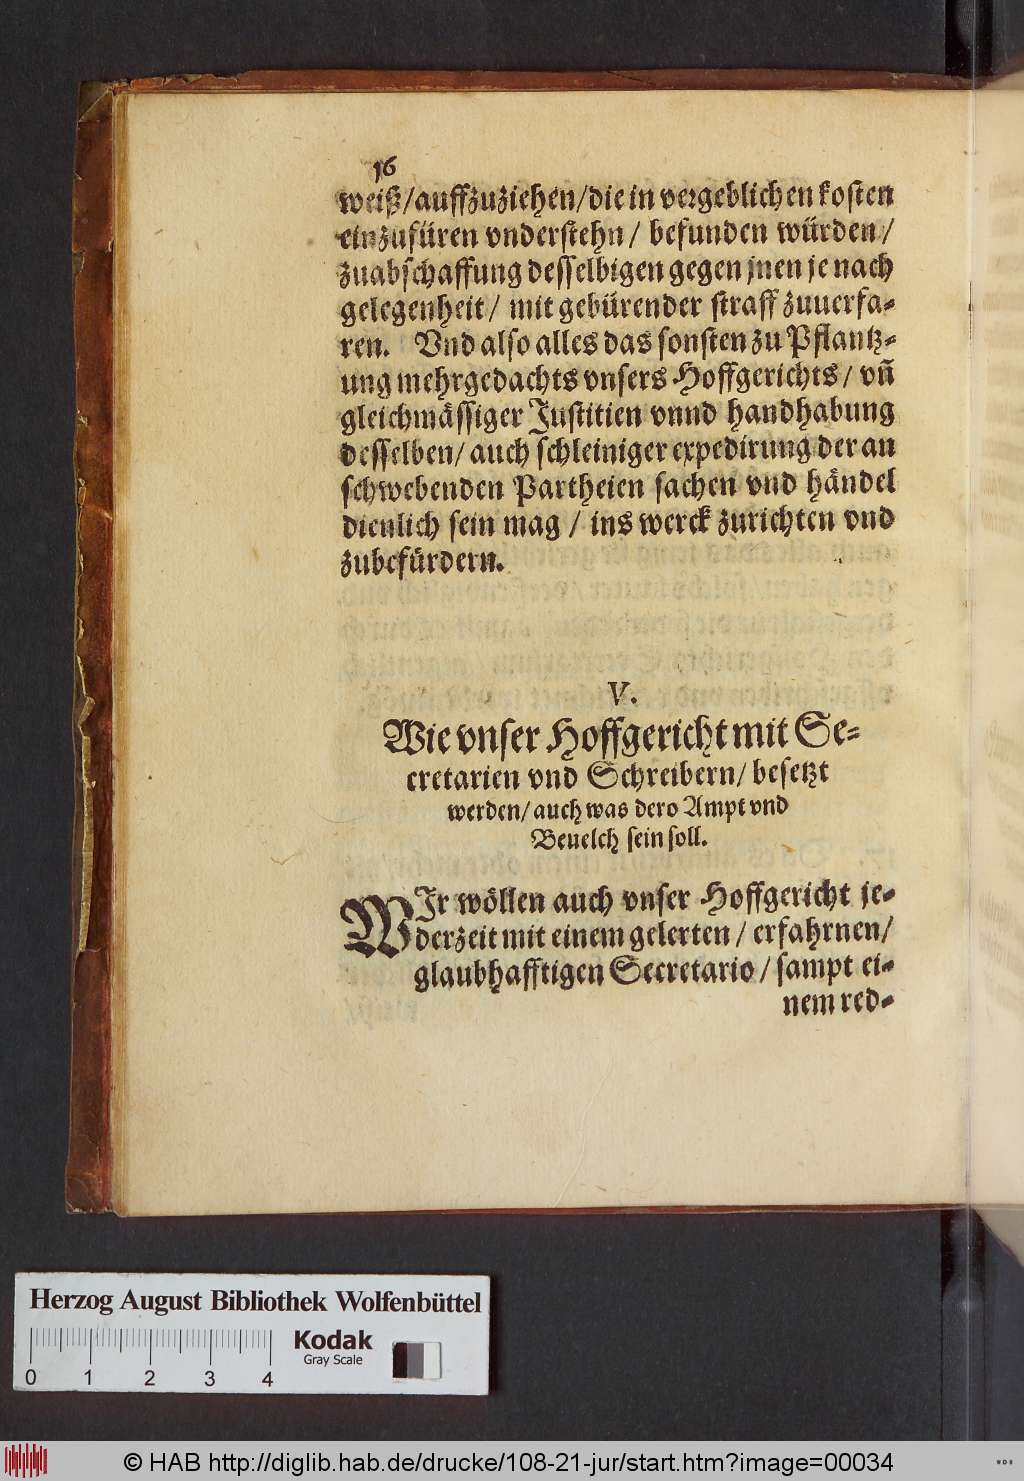 16
weiß/auffzuziehen/die in vergeblichen kosten
einzufüren vnderstehn/ befunden würden/
zuabschaffung desselbigen gegen jnen je nach
gelegenheit/ mit gebürender straff zuuerfa-
ren. Vnd also alles das sonsten zu Pflantz-
ung mehrgedachts vnsers Hoffgerichts/ vñ
gleichmässiger Justitien vnnd handhabung
desselben/ auch schleiniger expedirung der an
schwebenden Partheien sachen vnd händel
dienlich sein mag / ins werck zurichten vnd
zubefürdern.
V.
Wie vnser Hoffgericht mit Se-
cretarien vnd Schreibern/ besetzt
werden/ auch was dero Ampt vnd
Beuelch sein soll.
WIr wöllen auch vnser Hoffgericht je-
derzeit mit einem gelerten / erfahrnen/
glaubhafftigen Secretario / sampt ei-
nem red-
Herzog August Bibliothek Wolfenbüttel
Kodak
Gray Scale
0 1 2 3 4
© HAB http://diglib.hab.de/drucke/108-21-jur/start.htm?image=00034